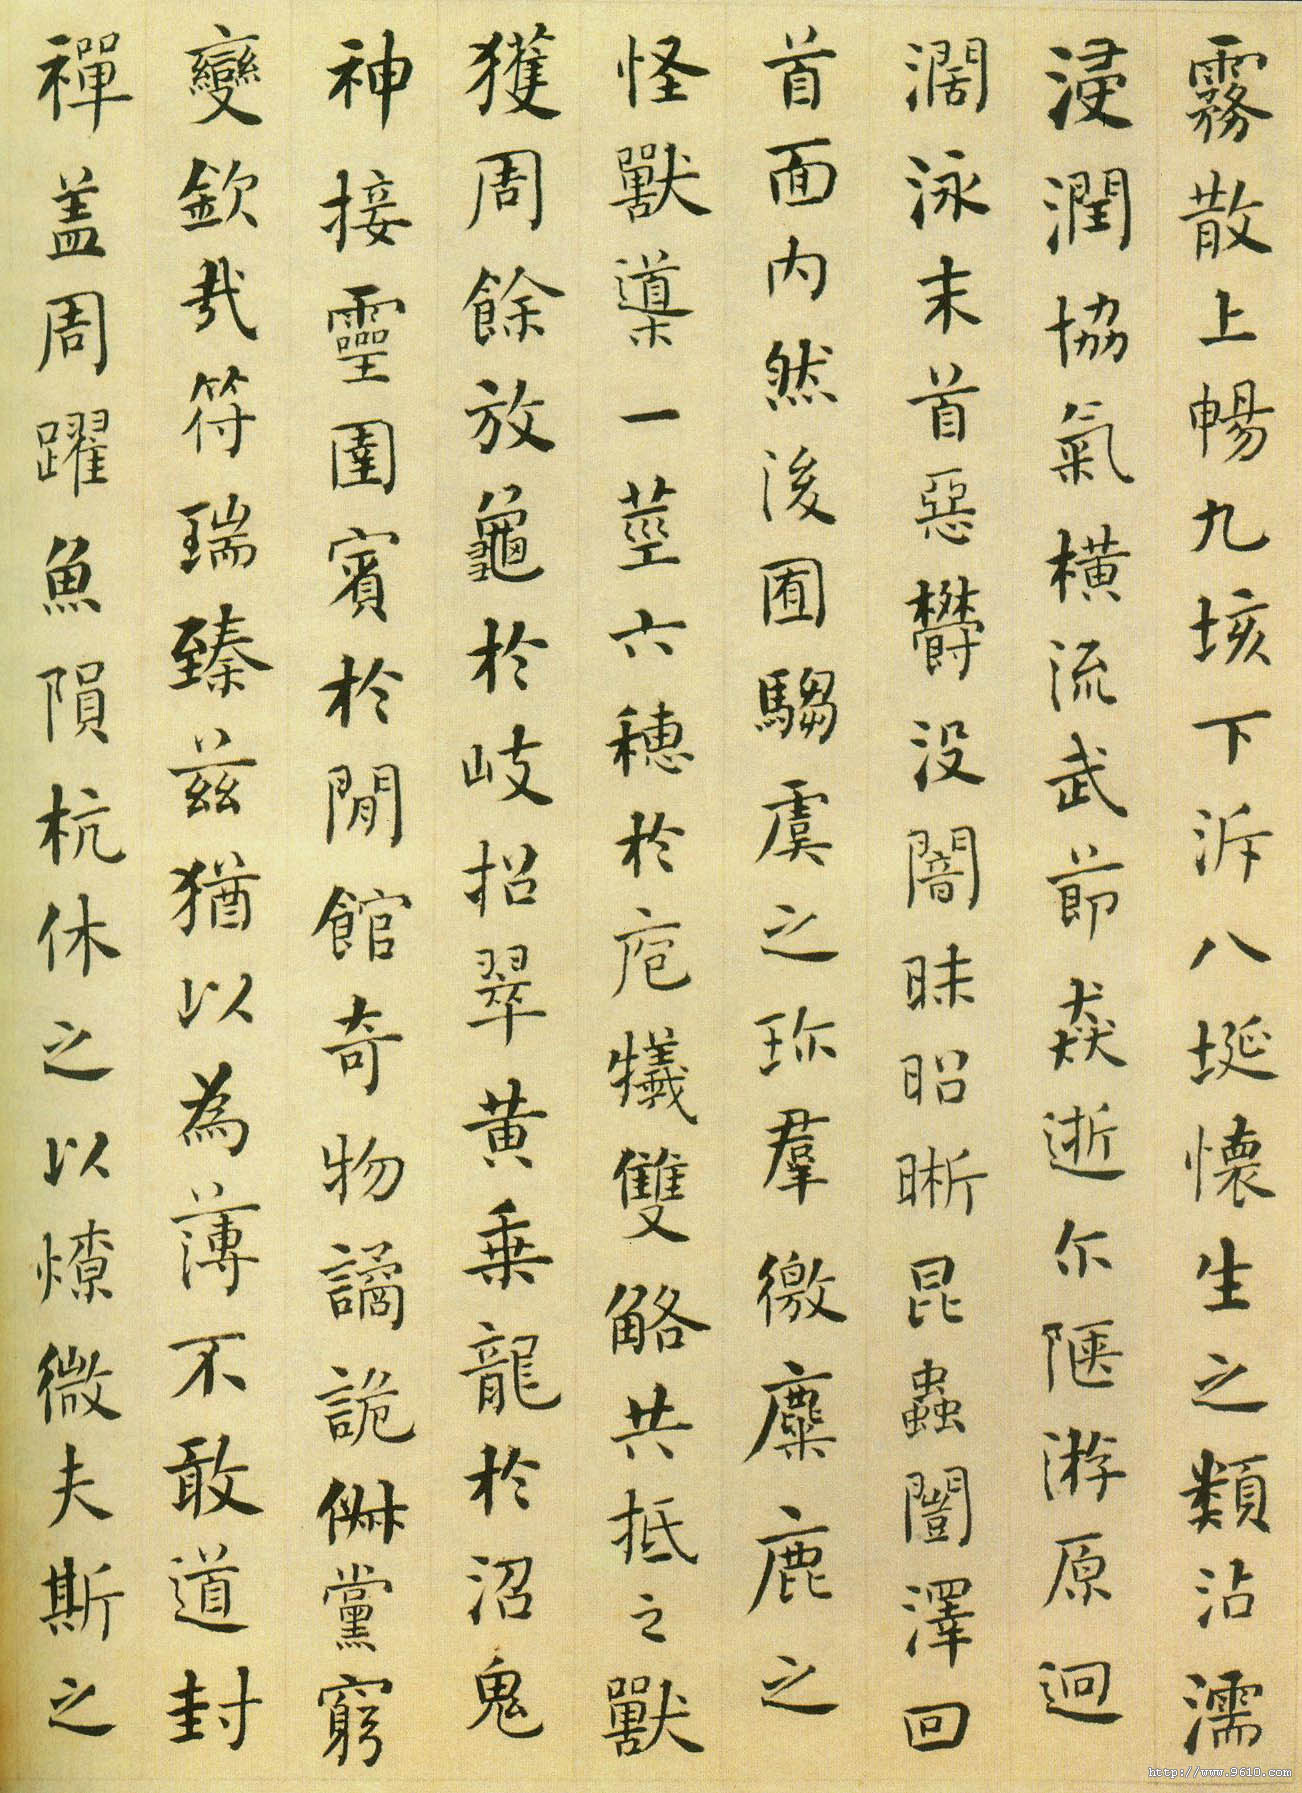 霧散上暢九垓下泝八埏懷生之類沾濡
浸潤協氣橫流武節猋逝尒陿游原迥
濶泳末首惡欝没闇昧昭晰昆蟲闓澤回
首面内然後囿騶虞之珎羣徼麋鹿之
怪獸䆃一莖六穗於庖犧雙觡共抵之獸
獲周餘放龜於岐招翠黄乗龍於沼鬼
神接靈圉賓於閒館奇物譎詭俶黨窮
變欽㢤符瑞臻兹猶以為薄不敢道封
禪盖周躍魚隕杭休之以燎微夫斯之
http://www.9610.com